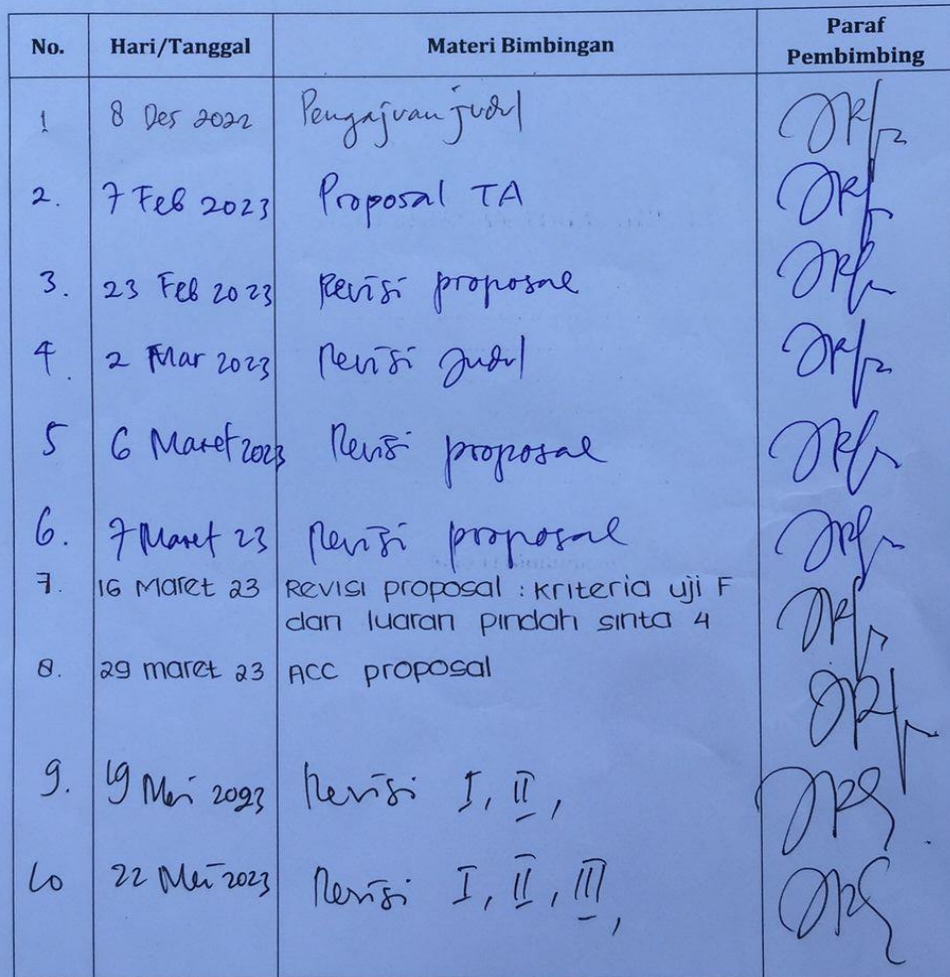 No. Hari/Tanggal Materi Bimbingan Paraf Pembimbing
1 8 Des 2022 Pengajuan judul
2. 7 Feb 2023 Proposal TA
3. 23 Feb 2023 Revisi proposal
4. 2 Mar 2023 Revisi Judul
5 6 Maret 2023 Revisi proposal
6. 7 Maret 23 Revisi proposal
7. 16 Maret 23 Revisi proposal : Kriteria uji F
dan luaran pindah sinta 4
8. 29 maret 23 ACC proposal
9. 19 Mei 2023 Revisi I, II,
10 22 Mei 2023 Revisi I, II, III,